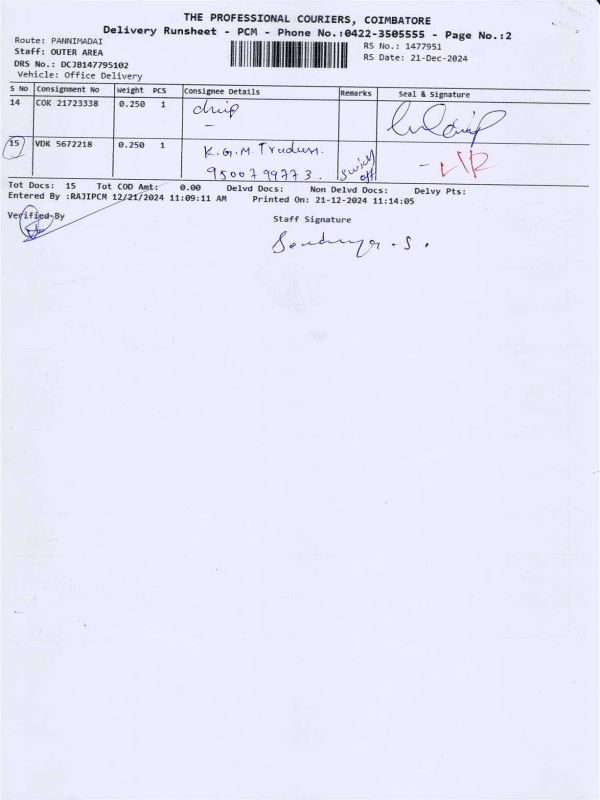 THE PROFESSIONAL COURIERS, COIMBATORE
Delivery Runsheet - PCM - Phone No.:0422-3505555 - Page No.:2
Route: PANNIMADAI
RS No.: 1477951
Staff: OUTER AREA
RS Date: 21-Dec-2024
DRS No.: DCJB147795102
Vehicle: Office Delivery
S No Consignment No Weight PCS Consignee Details Remarks Seal & Signature
14 COK 21723338 0.250 1
15 VDK 5672218 0.250 1 K.G.M. Traders.
9500799773. Swich off - L/R
Tot Docs: 15 Tot COD Amt: 0.00 Delvd Docs: Non Delvd Docs: Delvy Pts:
Entered By :RAJIPCM 12/21/2024 11:09:11 AM Printed On: 21-12-2024 11:14:05
Verified By
Staff Signature